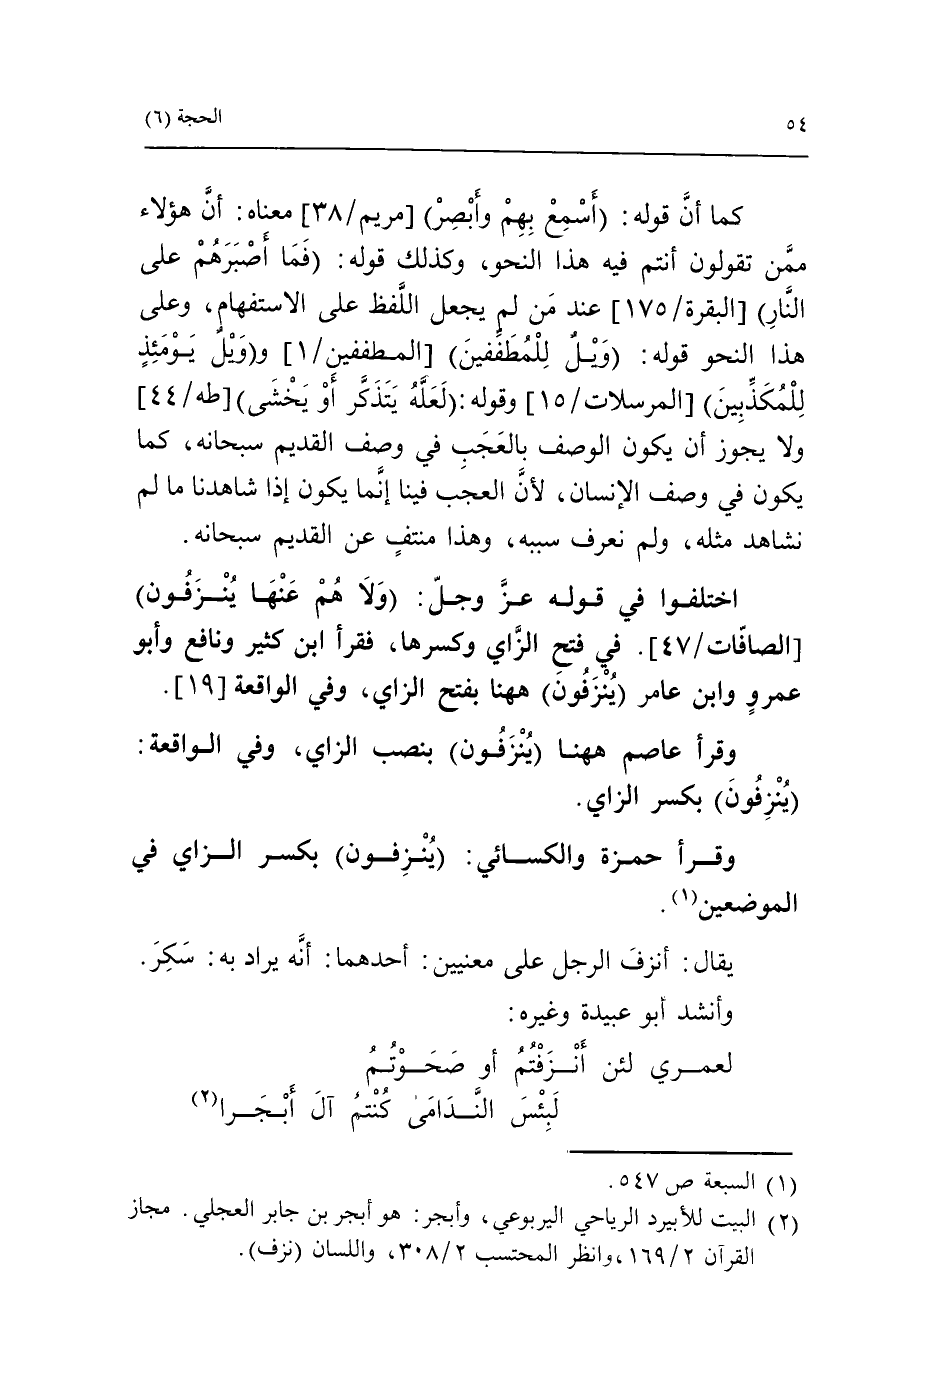 ٥٤
الحجة (٦)
كما أنَّ قوله: (أَسْمِعْ بِهِمْ وأَبْصِرْ) [مريم/٣٨] معناه: أنَّ هؤلاء
ممَّن تقولون أنتم فيه هذا النحو، وكذلك قوله: (فَمَا أَصْبَرَهُمْ على
النَّارِ) [البقرة/١٧٥] عند مَن لم يجعل اللَّفظ على الاستفهام، وعلى
هذا النحو قوله: (وَيْلٌ لِلْمُطَفِّفينَ) [المطففين/١] و(وَيْلٌ يَوْمَئِذٍ
لِلْمُكَذِّبِينَ) [المرسلات/١٥] وقوله: (لَعَلَّهُ يَتَذَكَّر أَوْ يَخْشَى) [طه/٤٤]
ولا يجوز أن يكون الوصف بالعَجَبِ في وصف القديم سبحانه، كما
يكون في وصف الإنسان، لأنَّ العجب فينا إنَّما يكون إذا شاهدنا ما لم
نشاهد مثله، ولم نعرف سببه، وهذا منتفٍ عن القديم سبحانه.
اختلفوا في قوله عزَّ وجلّ: (وَلَا هُمْ عَنْهَا يُنْزَفُون)
[الصافّات/٤٧]. في فتح الزَّاي وكسرها، فقرأ ابن كثير ونافع وأبو
عمروٍ وابن عامر (يُنْزَفُونَ) ههنا بفتح الزاي، وفي الواقعة [١٩].
وقرأ عاصم ههنا (يُنْزَفُون) بنصب الزاي، وفي الواقعة:
(يُنْزِفُونَ) بكسر الزاي.
وقرأ حمزة والكسائي: (يُنْزِفون) بكسر الزاي في
الموضعين(١).
يقال: أنزفَ الرجل على معنيين: أحدهما: أنَّه يراد به: سَكِرَ.
وأنشد أبو عبيدة وغيره:
لعمري لئن أَنْزَفْتُمُ أو صَحَوْتُمُ
لَبِئْسَ النَّدَامَىٰ كُنْتمُ آلَ أَبْجَرا(٢)
(١) السبعة ص ٥٤٧.
(٢) البيت للأبيرد الرياحي اليربوعي، وأبجر: هو أبجر بن جابر العجلي. مجاز
القرآن ١٦٩/٢، وانظر المحتسب ٣٠٨/٢، واللسان (نزف).